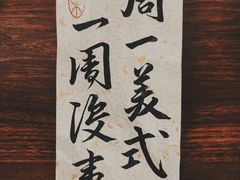 周一美式
一周没事